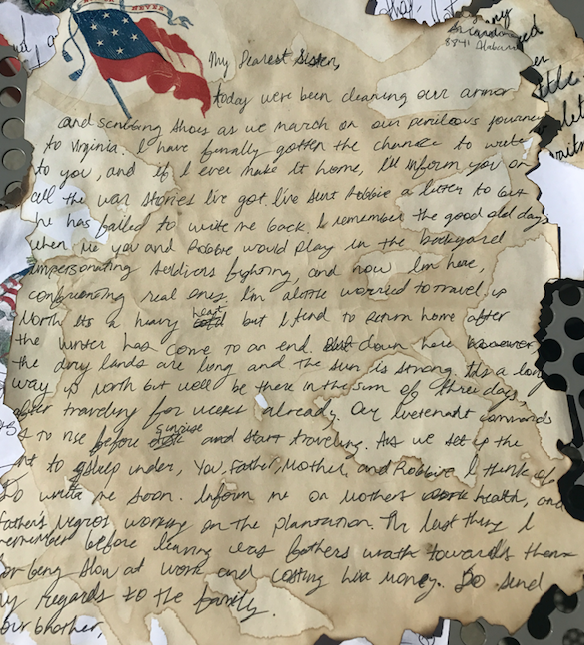 NEVER
My Dearest Sister,
today we're been cleaning our armor
and scrubbing shoes as we march on our perilous journey
to Virginia. I have finally gotten the chance to write
to you, and if I ever make it home, I'll inform you on
all the war stories I've got. I've sent Robbie a letter to but
he has failed to write me back. I remember the good old days
when me you and Robbie would play in the backyard
impersonating soldiers fighting, and now I'm here,
real ones. I'm a little worried to travel up
North its a heavy heart but I tend to return home after
the winter has come to an end. down here
the dry lands are long and the sun is strong. It's a long
way up North but we'll be there in the sum of three days
after traveling for weeks already. Our commands
to rise before sunrise and start traveling. As we set up the
to sleep under, You, Father, Mother, and Robbie I think of
Do write me soon. Inform me on Mothers health, and
Father's working on the plantation. The last thing I
remember before leaving was fathers wrath towards them
for being slow at work and costing him money. Do send
my regards to the family.
your brother,
8841 Alabama